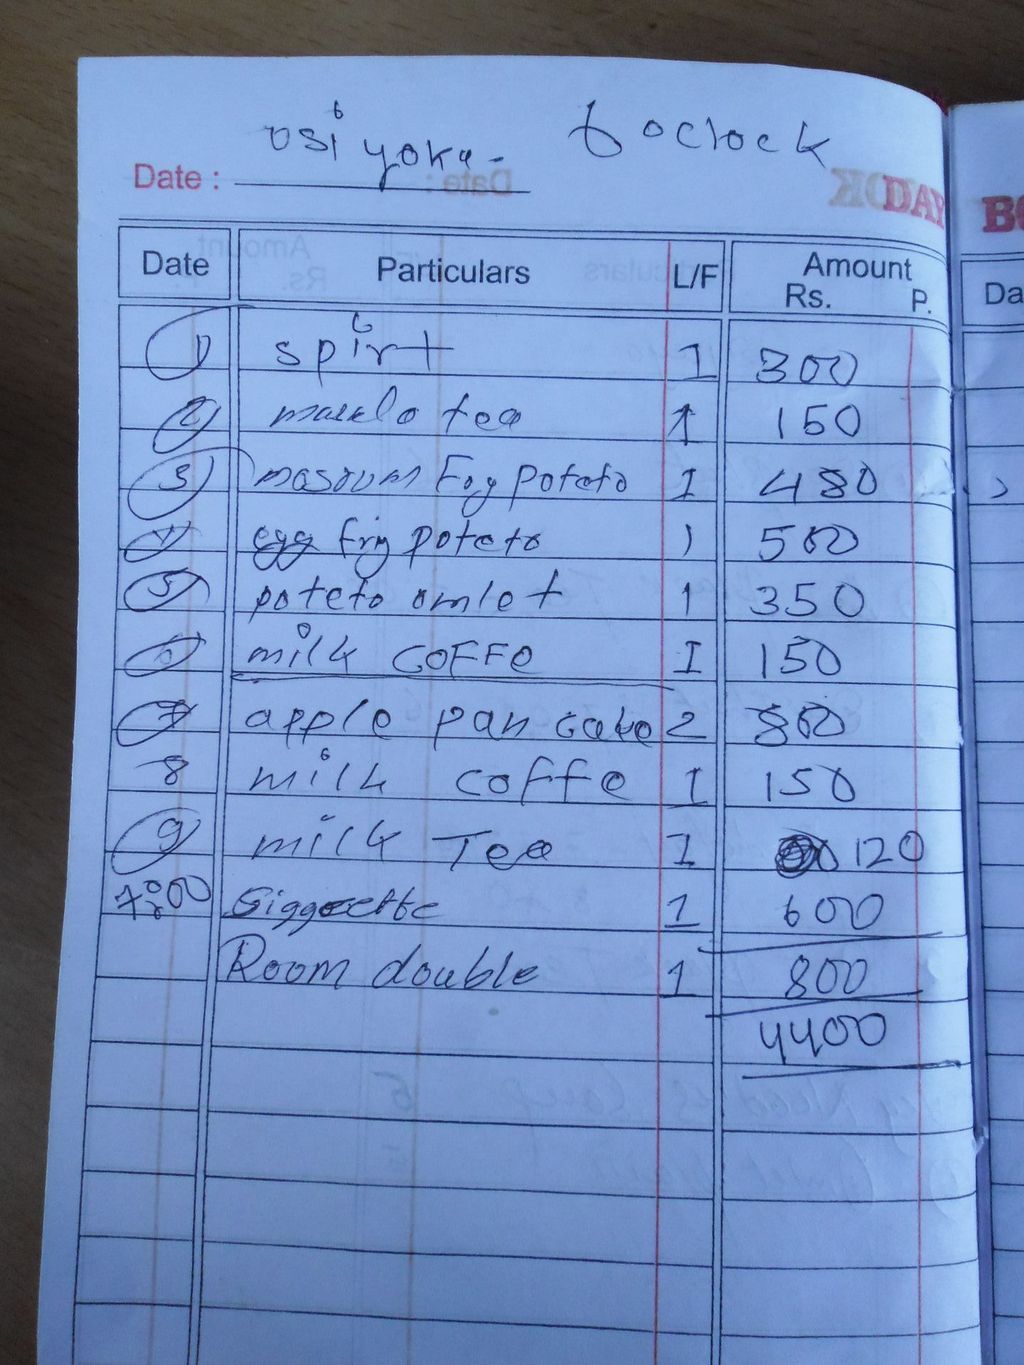 osi yoka - 6 oclock
Date :
DAY
BO
Date Particulars L/F Amount
Rs. P.
Da
1) spirt 1 300
2 masalo tea 1 150
3 masrum Fry poteto 1 480
4 egg fry poteto 1 500
5 poteto omlet 1 350
6 milk COFFE 1 150
7 apple pan cake 2 800
8 milk coffe 1 150
9 milk Tea 1 120
Siggerette 1 600
Room double 1 800
4400